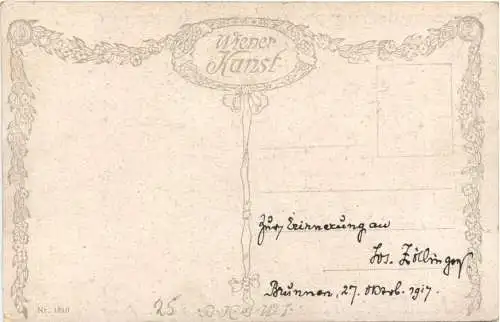 Wiener
Kunst
Zur Erinnerung an
Jos. Zollinger
Brunnen, 27. Oktob. 1917.
Nr.
25